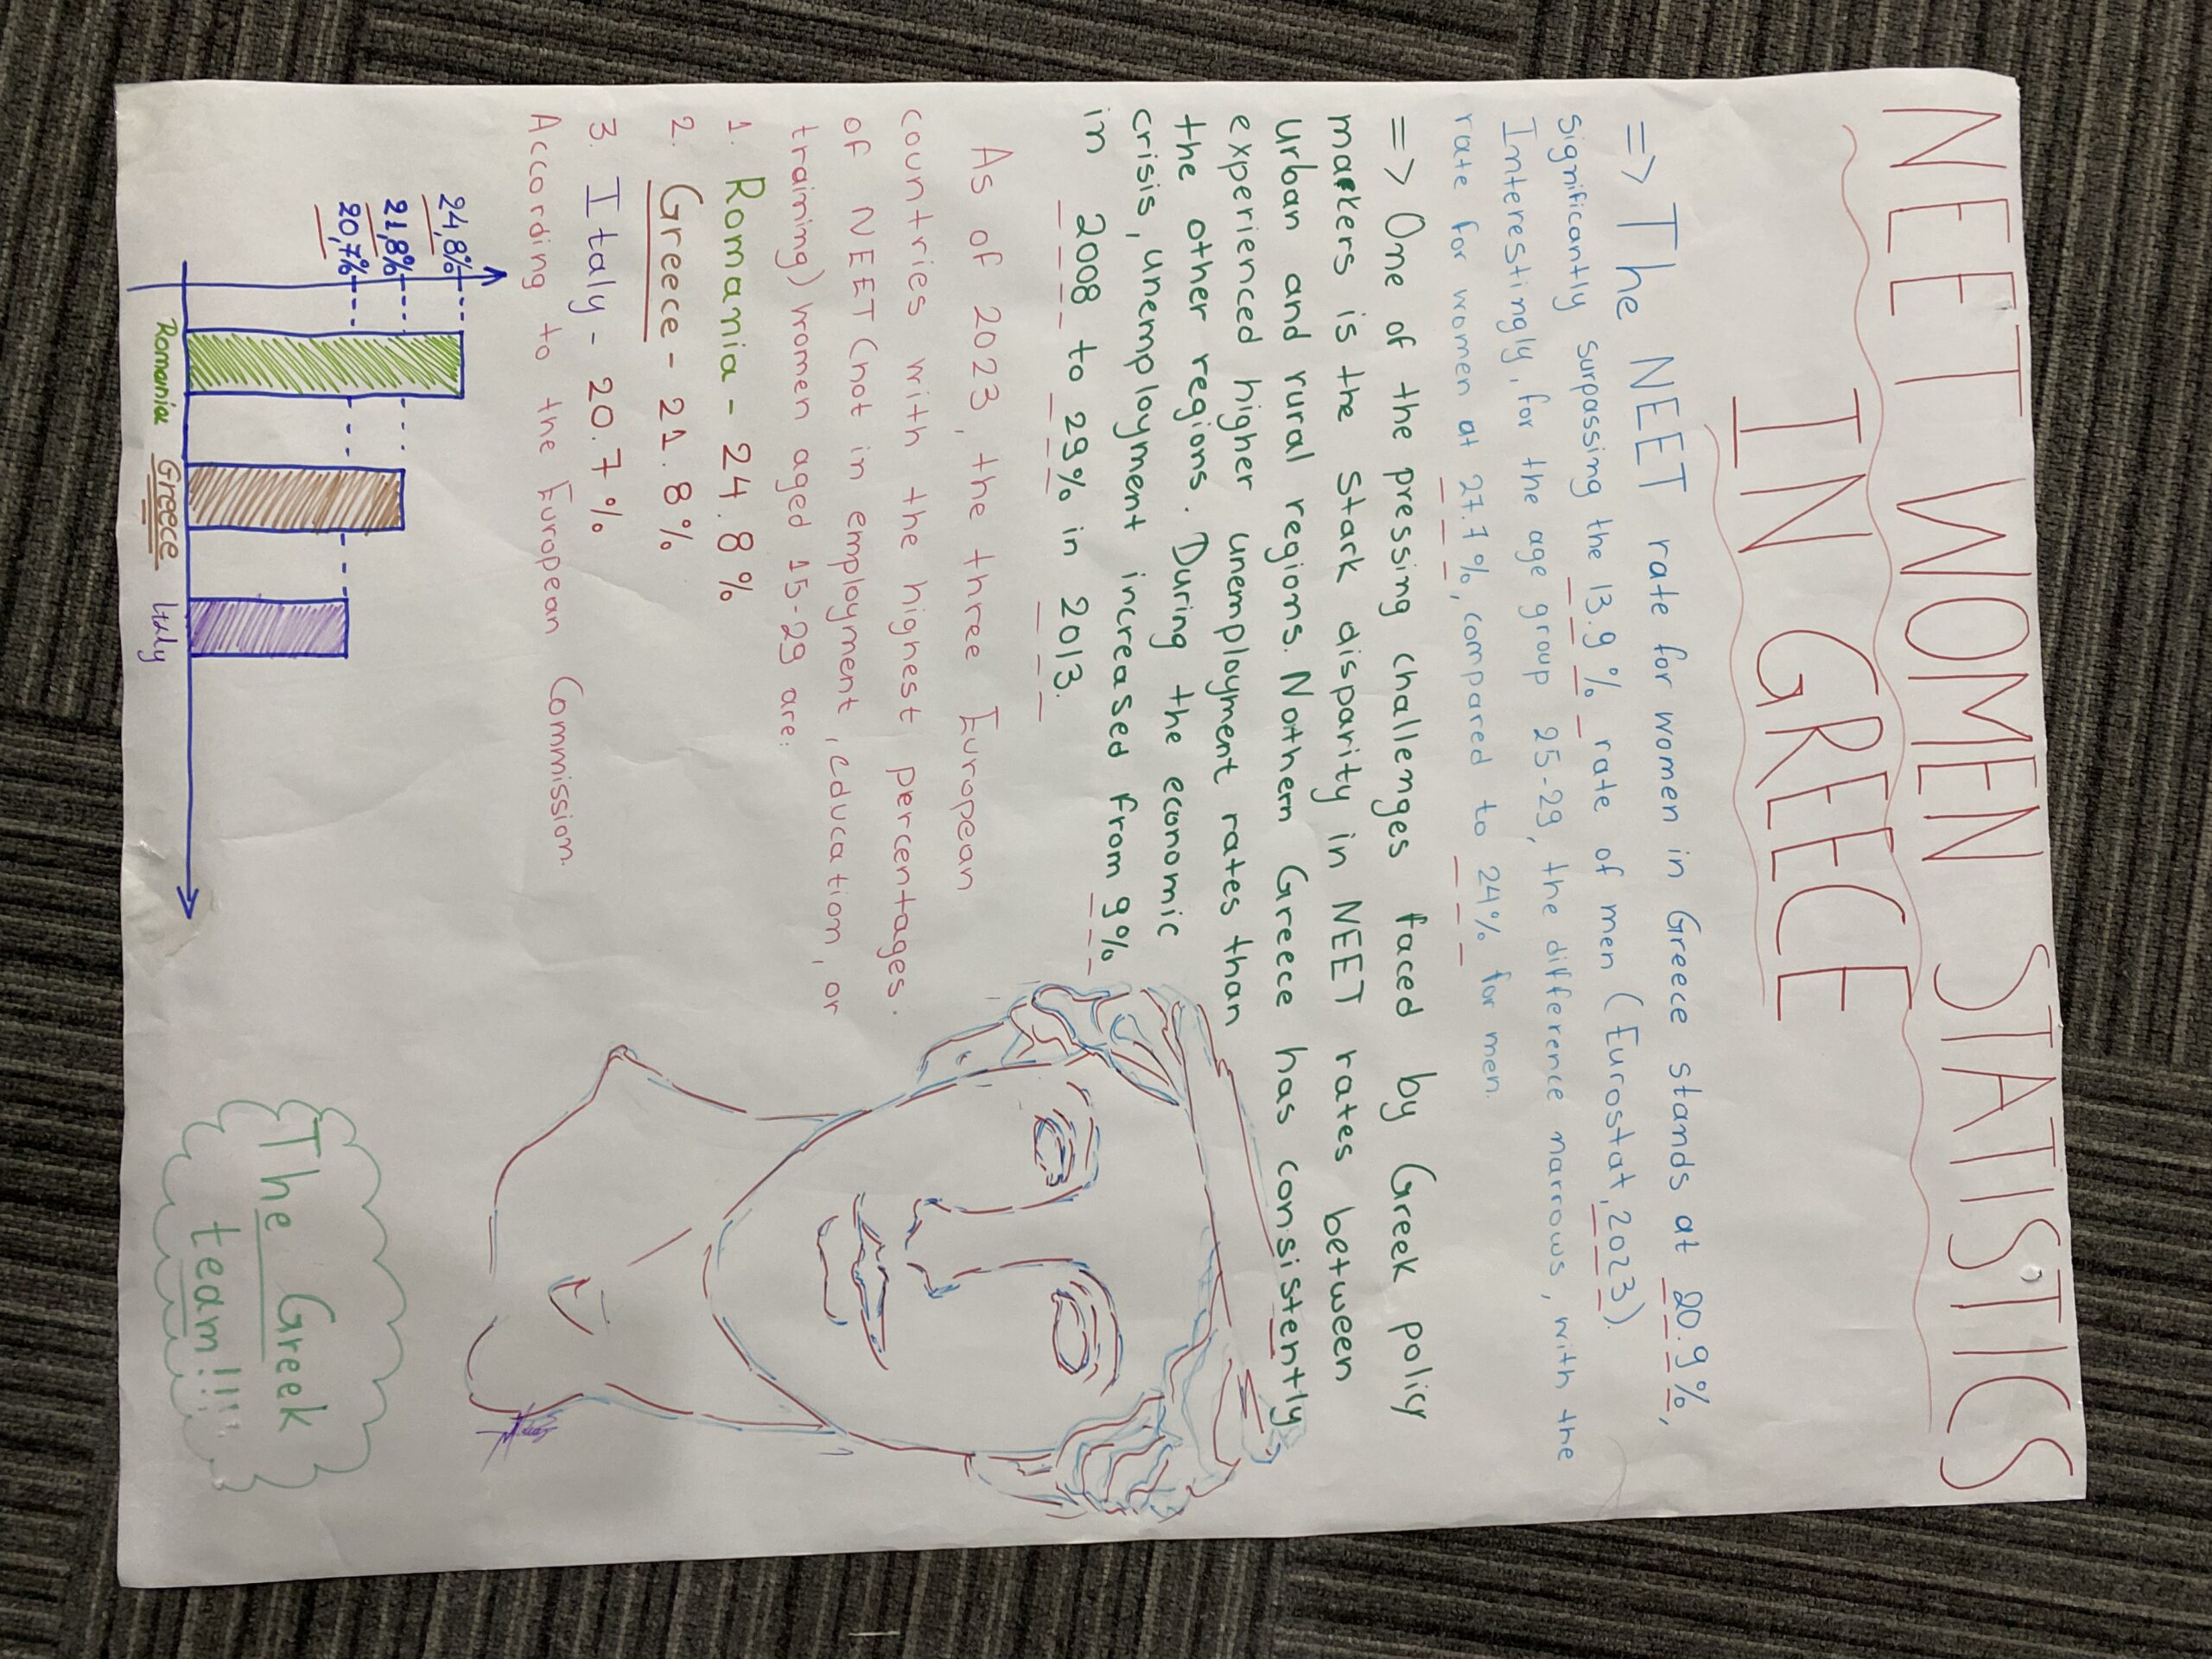 NEET WOMEN STATISTICS
IN GREECE
=> The NEET rate for women in Greece stands at 20.9%,
significantly surpassing the 13.9% rate of men (Eurostat, 2023).
Interestingly, for the age group 25-29, the difference narrows, with the
rate for women at 27.7%, compared to 24% for men.
=> One of the pressing challenges faced by Greek policy
makers is the stark disparity in NEET rates between
urban and rural regions. Nothern Greece has consistently
experienced higher unemployment rates than
the other regions. During the economic
crisis, unemployment increased from 9%
in 2008 to 29% in 2013.
As of 2023, the three European
countries with the highest percentages.
of NEET (not in employment, education, or
training) women aged 15-29 are:
1. Romania - 24.8%
2. Greece - 21.8%
3. Italy - 20.7%
According to the European Commission.
24,8%
21,8%
20,7%
Romania Greece Italy
The Greek
team!!!!